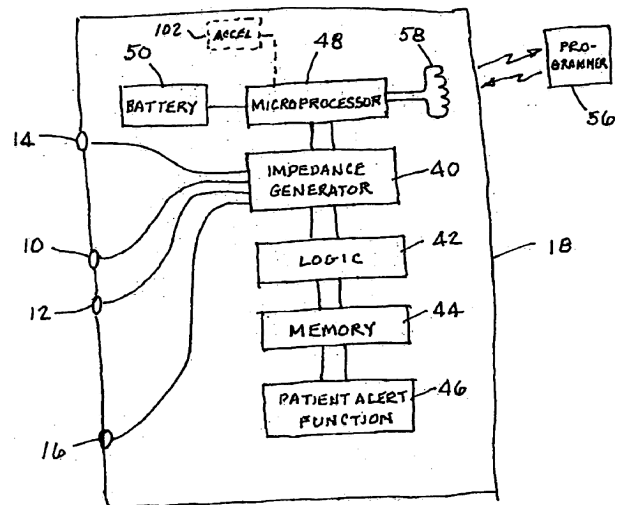 102
ACCEL
50
48
58
PRO-
GRAMMER
56
BATTERY
MICROPROCESSOR
14
IMPEDANCE
GENERATOR
40
10
LOGIC
42
18
12
MEMORY
44
PATIENT ALERT
FUNCTION
46
16